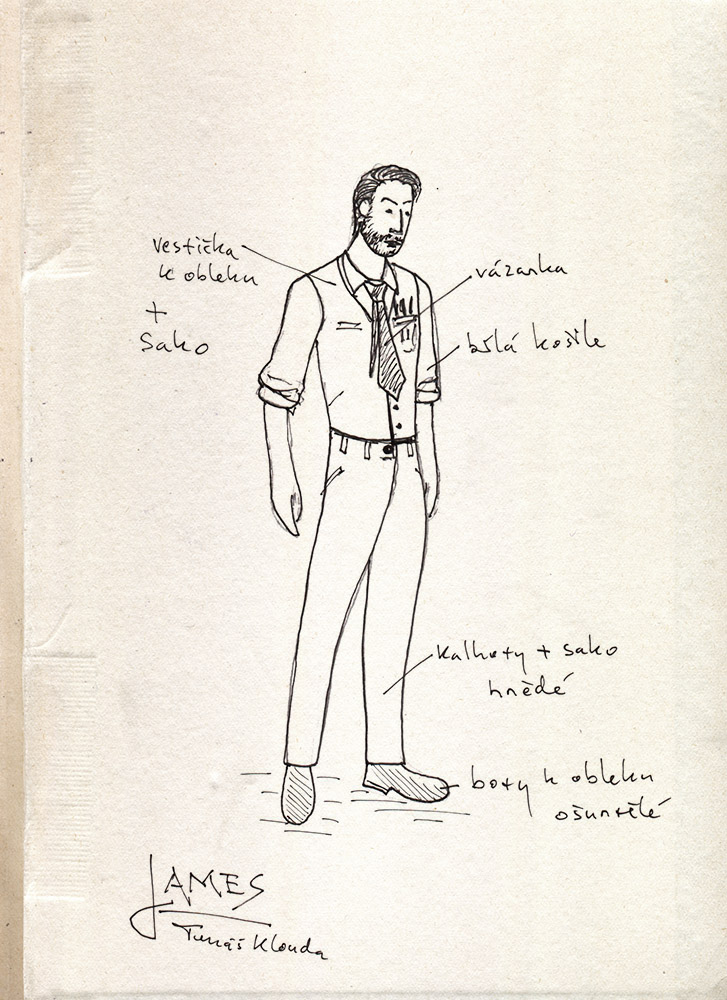 vestička
k obleku
+
Sako
vázanka
bílá košile
kalhoty + sako
hnědé
boty k obleku
ošuntělé
JAMES
Tomáš Klouda